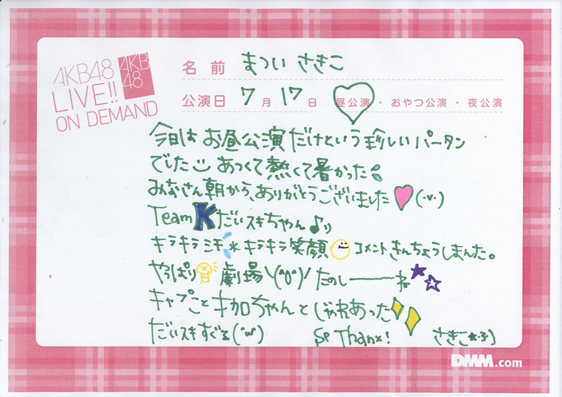 AKB48
LIVE!!
ON DEMAND
AKB
48
名前 まつい さきこ
公演日 7月17日 昼公演・おやつ公演・夜公演
今日は お昼公演だけという珍しいパータン
でした あつくて熱くて暑かった
みなさん朝から、ありがとうございました (・v・)
Team Kだいスキちゃん♪り
キラキラミチ*キラキラ笑顔 コメントきんちょうしました。
やっぱり 劇場 たのしーーーね
キャプこと ちゃんと じゃれあった
だいスキすぎる(・w・) Sp Thanx! さきこ
DMM.com